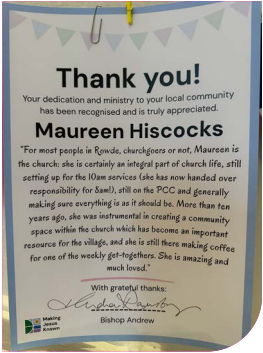 Thank you!
Your dedication and ministry to your local community
has been recognised and is truly appreciated.
Maureen Hiscocks
"For most people in Rowde, churchgoers or not, Maureen is
the church: she is certainly an integral part of church life, still
setting up for the 10am services (she has now handed over
responsibility for 8am!), still on the PCC and generally
making sure everything is as it should be. More than ten
years ago, she was instrumental in creating a community
space within the church which has become an important
resource for the village, and she is still there making coffee
for one of the weekly get-togethers. She is amazing and
much loved."
With grateful thanks:
Bishop Andrew
Making
Jesus
Known